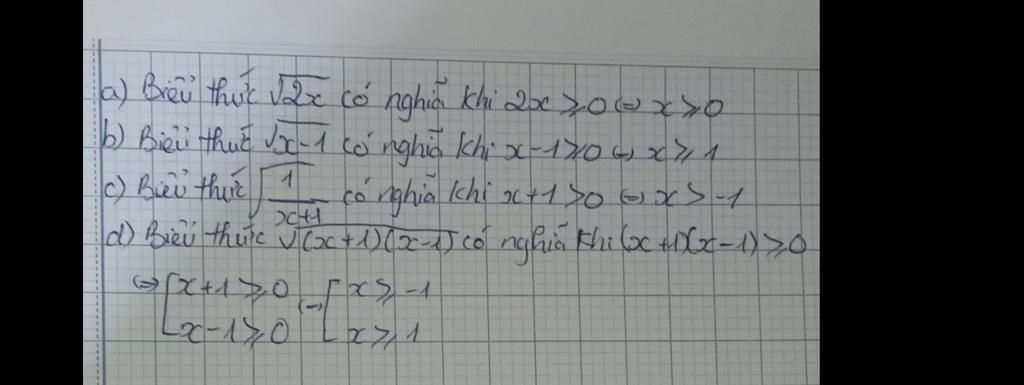 a) Biểu thức √2x có nghĩa khi 2x ≥ 0 ⇔ x ≥ 0
b) Biểu thức √x-1 có nghĩa khi x-1 ≥ 0 ⇔ x ≥ 1
c) Biểu thức √1/x+1 có nghĩa khi x+1 > 0 ⇔ x > -1
d) Biểu thức √(x+1)(x-1) có nghĩa khi (x+1)(x-1) ≥ 0
⇔ [x+1 ≥ 0 ⇔ [x ≥ -1
x-1 ≥ 0 x ≥ 1